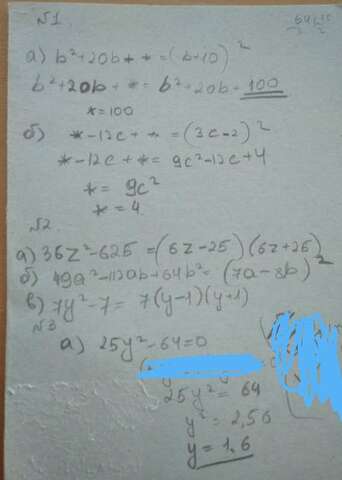 №1.
а) b²+20b+* = (b+10)²
b²+20b+* = b²+20b+100
*=100
б) *-12c+* = (3c-2)²
*-12c+* = 9c²-12c+4
* = 9c²
* = 4
№2
а) 36z²-625=(6z-25)(6z+25)
б) 49a²-112ab+64b²= (7a-8b)²
в) 7y²-7= 7(y-1)(y+1)
№3
а) 25y²-64=0
25y² = 64
y² = 2,56
y = 1,6